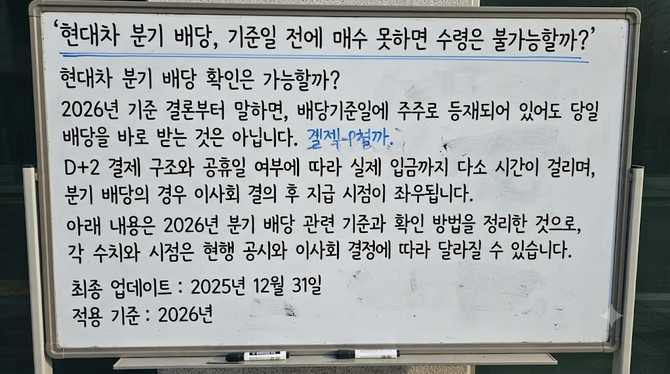 '현대차 분기 배당, 기준일 전에 매수 못하면 수령은 불가능할까?'
현대차 분기 배당 확인은 가능할까?
2026년 기준 결론부터 말하면, 배당기준일에 주주로 등재되어 있어도 당일
배당을 바로 받는 것은 아닙니다.
D+2 결제 구조와 공휴일 여부에 따라 실제 입금까지 다소 시간이 걸리며,
분기 배당의 경우 이사회 결의 후 지급 시점이 좌우됩니다.
아래 내용은 2026년 분기 배당 관련 기준과 확인 방법을 정리한 것으로,
각 수치와 시점은 현행 공시와 이사회 결정에 따라 달라질 수 있습니다.
최종 업데이트 : 2025년 12월 31일
적용 기준 : 2026년